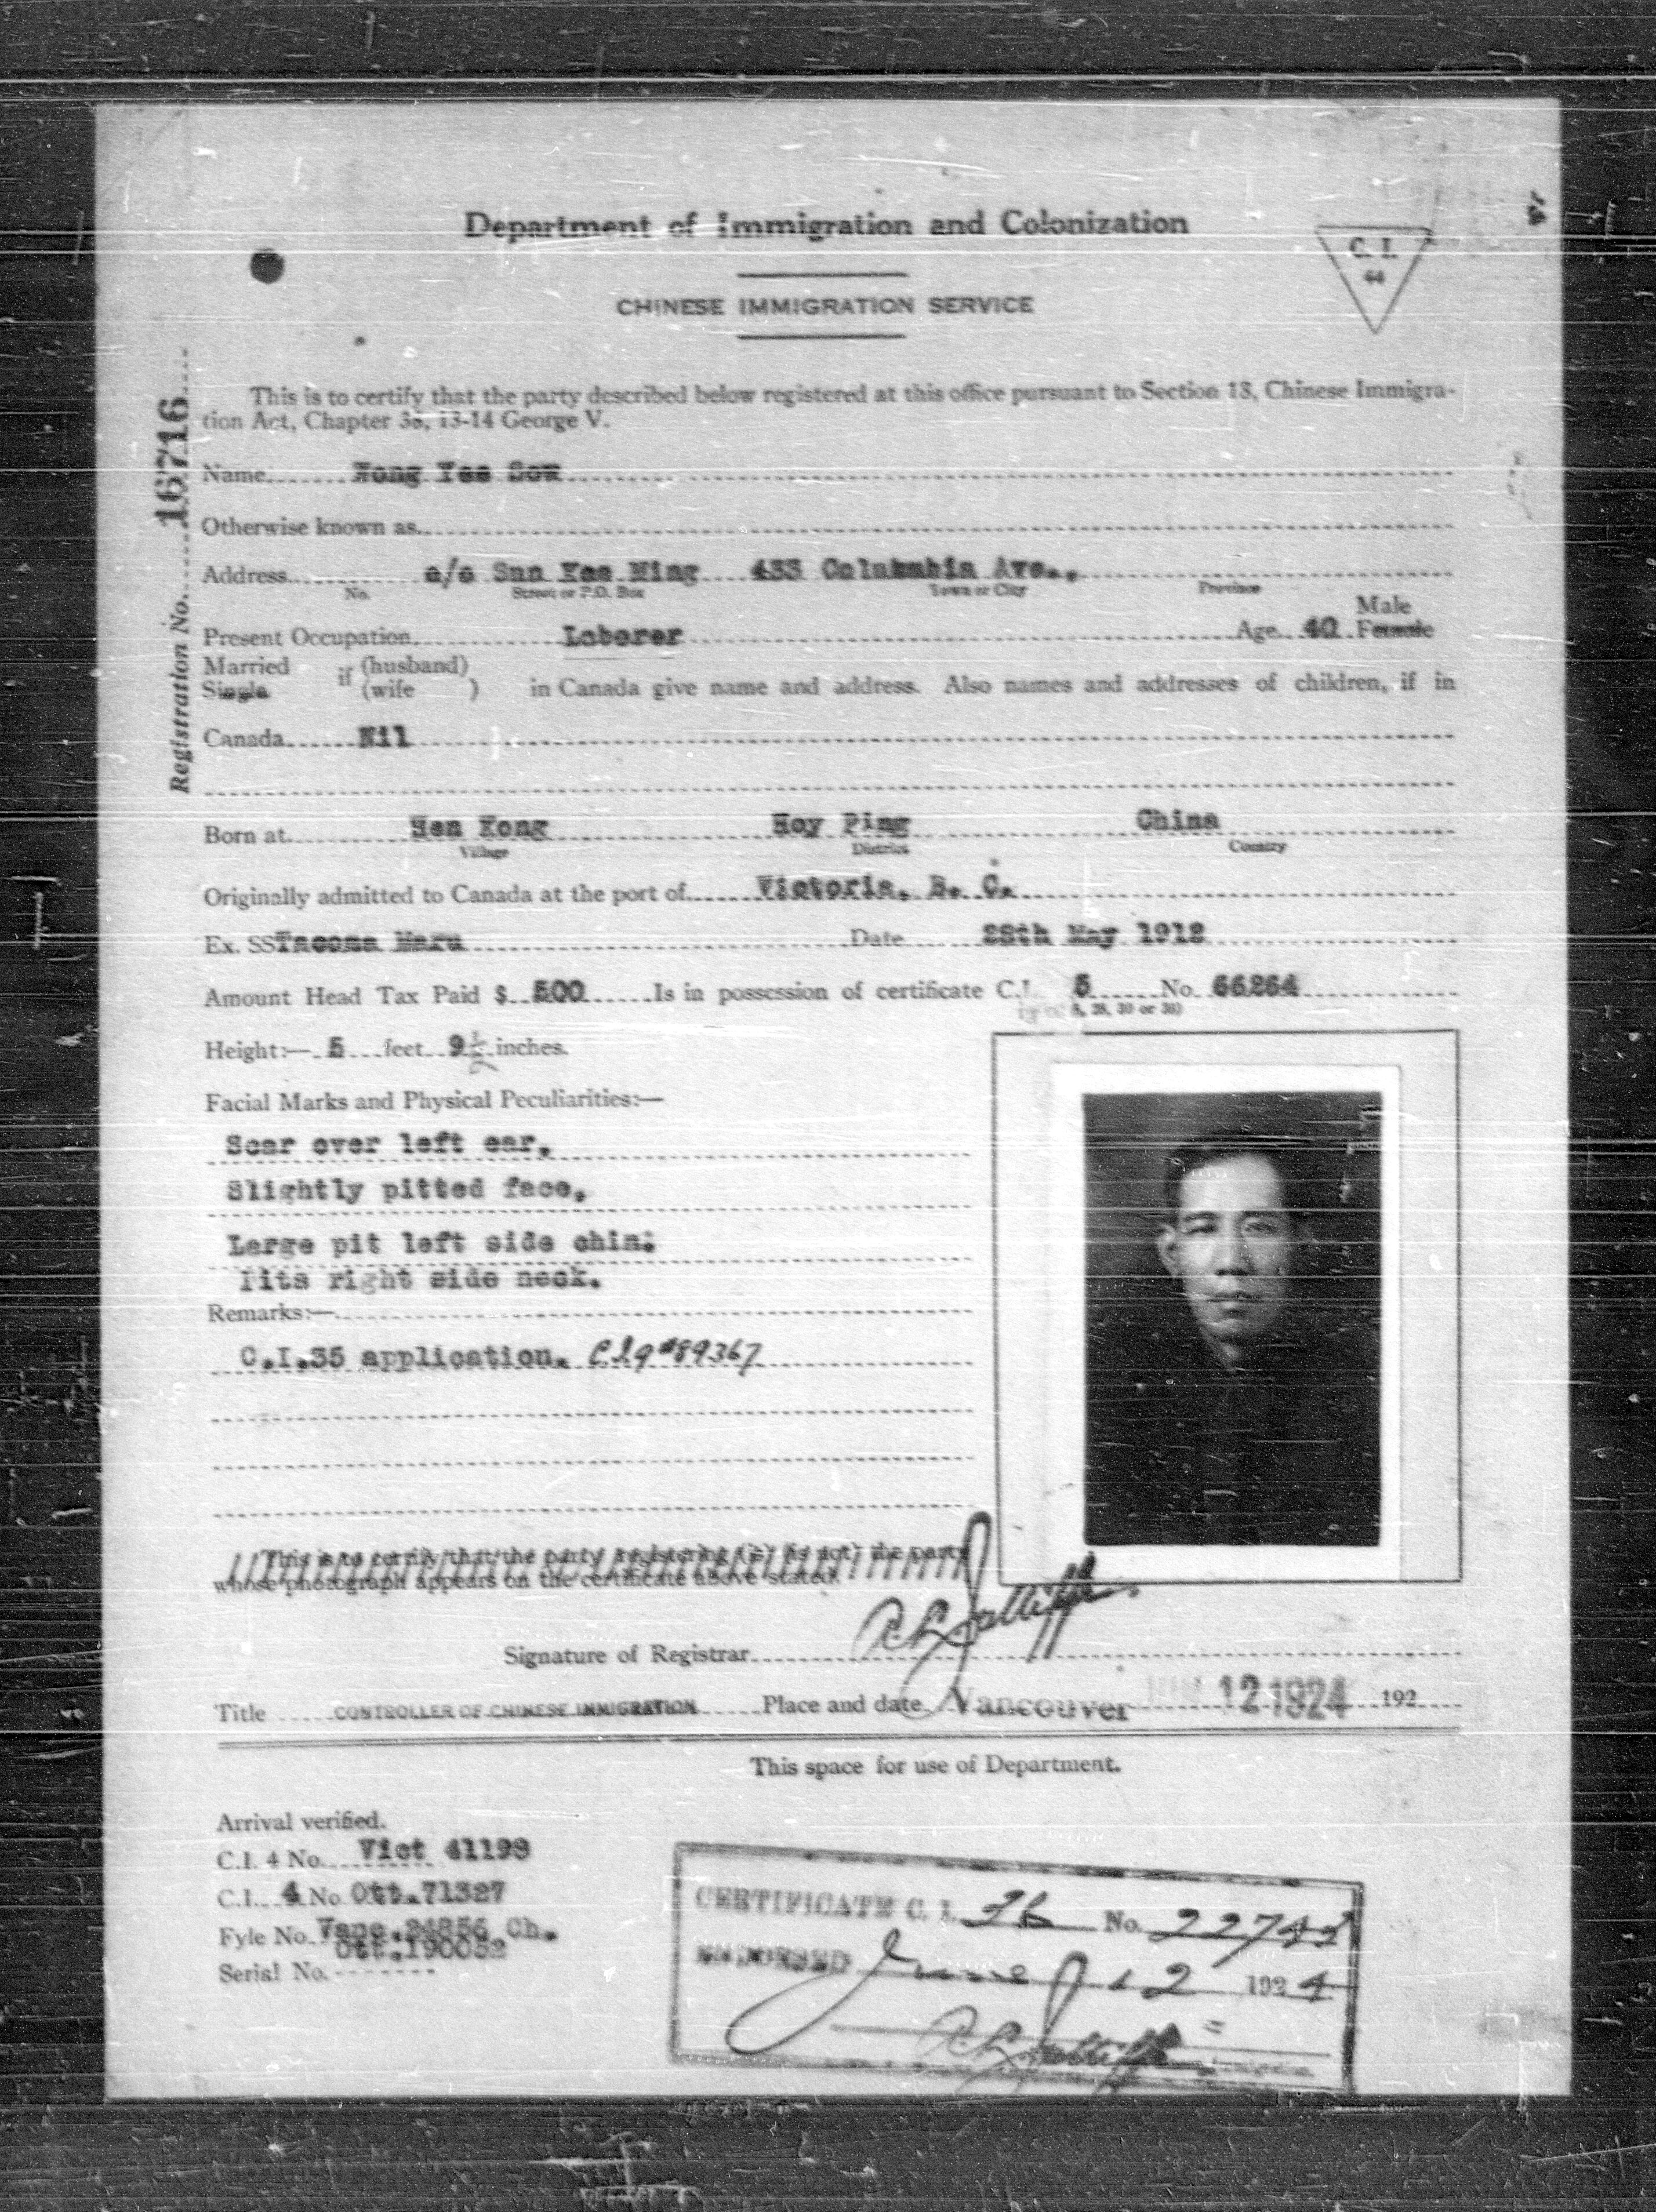 Department of Immigration and Colonization
C. I.
44
CHINESE IMMIGRATION SERVICE
Registration No. 16716
This is to certify that the party described below registered at this office pursuant to Section 18, Chinese Immigra-
tion Act, Chapter 38, 13-14 George V.
Name Wong Yee Sow
Otherwise known as
Address c/o Sun Kee Hing 433 Columbia Ave.,
No. Street or P.O. Box Town or City Province
Male
Present Occupation Laborer Age 40 Female
Married if (husband)
Single (wife ) in Canada give name and address. Also names and addresses of children, if in
Canada Nil
Born at Hen Kong Hoy Ping China
Village District Country
Originally admitted to Canada at the port of Victoria, B. C.
Ex. SS Tacoma Maru Date 28th May 1912
Amount Head Tax Paid $ 500 Is in possession of certificate C.I. 5 No. 66264
28, 30 or 36)
Height:— 5 feet 9½ inches.
Facial Marks and Physical Peculiarities:—
Scar over left ear,
Slightly pitted face,
Large pit left side chin;
Pits right side neck.
Remarks:—
C.I.35 application. C.I.9 #89367
This is to certify that the party registering (is) (is not) the party
whose photograph appears on the certificate above stated.
Signature of Registrar
Title CONTROLLER OF CHINESE IMMIGRATION Place and date Vancouver JUN 12 1924 192
This space for use of Department.
Arrival verified.
C.I. 4 No. Vict 41199
C.I. 4 No Ott.71327
Fyle No. Vanc.24856 Ch.
Ott.190052
Serial No. -------
CERTIFICATE C. I. 36 No.
ENDORSED June 12 1924